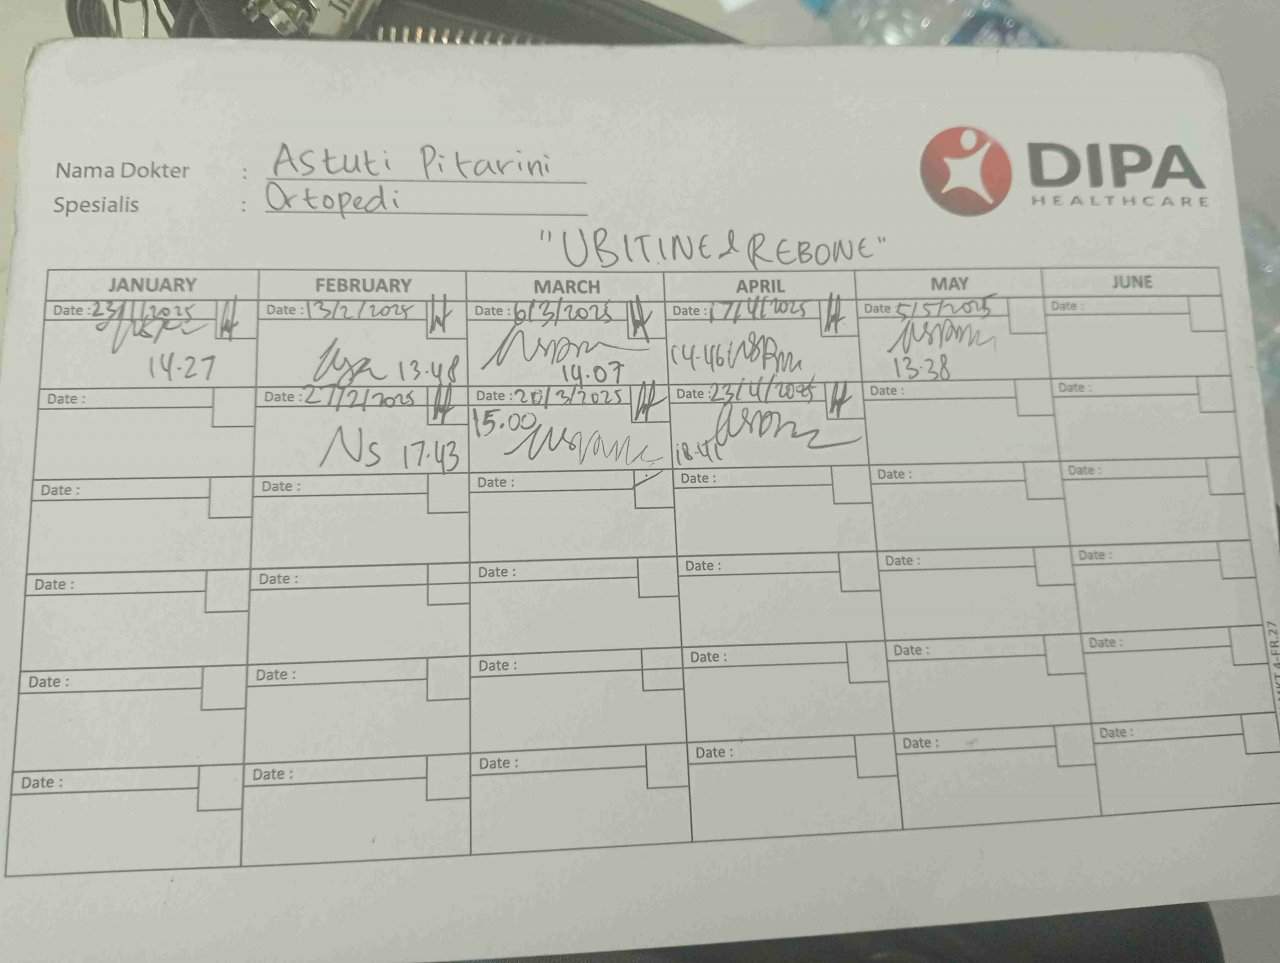 Nama Dokter : Astuti Pitarini
Spesialis : Ortopedi
DIPA
HEALTHCARE
"UBITINE & REBONE"
JANUARY FEBRUARY MARCH APRIL MAY JUNE
Date : 23/1/2025 Date : 13/2/2025 Date : 6/3/2025 Date : 17/4/2025 Date 5/5/2025 Date :
14.27 13.48 14.07 14.46 13.38
Date : Date : 27/2/2025 Date : 20/3/2025 Date : 23/4/2025 Date : Date :
Ns 17.43 15.00 18.41
Date : Date : Date : Date : Date : Date :
Date : Date : Date : Date : Date : Date :
Date : Date : Date : Date : Date : Date :
Date : Date : Date : Date : Date : Date :